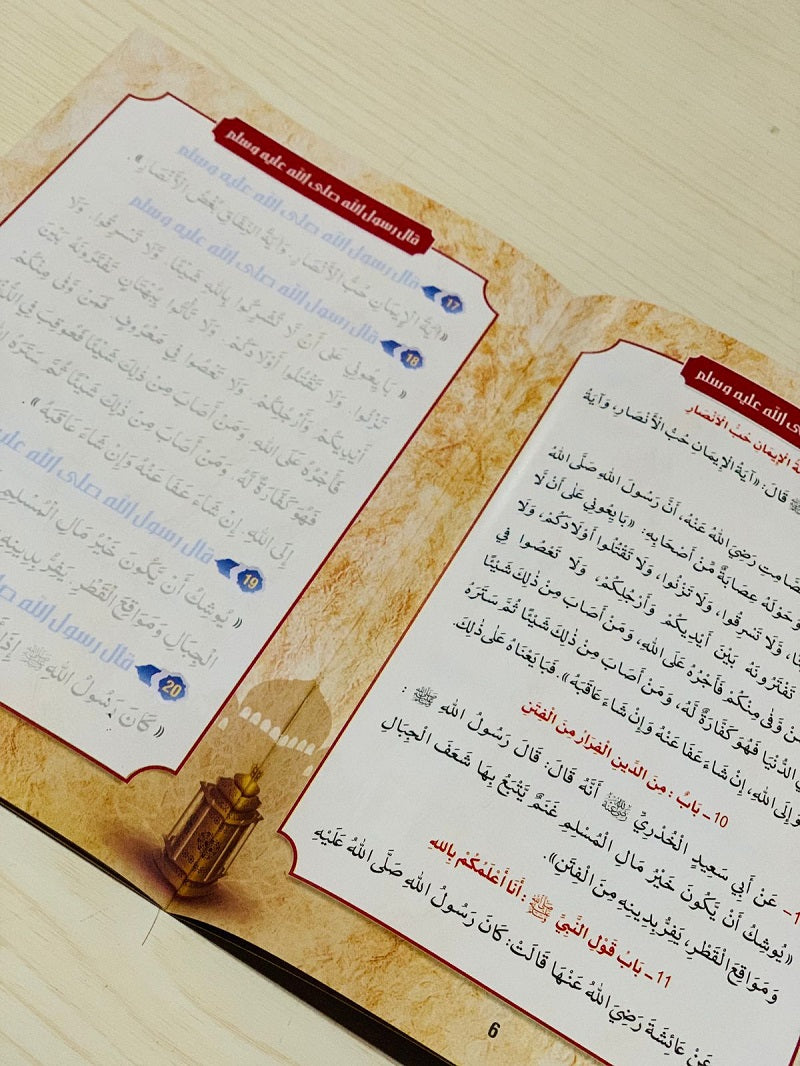 الله عليه وسلم
الْإِيمَانِ حُبُّ الْأَنْصَارِ
ﷺ قَالَ: «آيَةُ الْإِيمَانِ حُبُّ الْأَنْصَارِ، وَآيَةُ
رَضِيَ اللهُ عَنْهُ، أَنَّ رَسُولَ اللهِ صَلَّى اللهُ
وَحَوْلَهُ عِصَابَةٌ مِّنْ أَصْحَابِهِ: «بَايِعُونِي عَلَى أَنْ لَّا
وَلَا تَسْرِقُوا، وَلَا تَزْنُوا، وَلَا تَقْتُلُوا أَوْلَادَكُمْ، وَلَا
تَفْتَرُونَهُ بَيْنَ أَيْدِيكُمْ وَأَرْجُلِكُمْ، وَلَا تَعْصُوا فِي
وَفَى مِنْكُمْ فَأَجْرُهُ عَلَى اللهِ، وَمَنْ أَصَابَ مِنْ ذَلِكَ شَيْئًا
الدُّنْيَا فَهُوَ كَفَّارَةٌ لَّهُ، وَمَنْ أَصَابَ مِنْ ذَلِكَ شَيْئًا ثُمَّ سَتَرَهُ
إِلَى اللهِ، إِنْ شَاءَ عَفَا عَنْهُ وَإِنْ شَاءَ عَاقَبَهُ». فَبَايَعْنَاهُ عَلَى ذَلِكَ.
10 ـ بَابٌ : مِنَ الدِّينِ الْفِرَارُ مِنَ الْفِتَنِ
عَنْ أَبِي سَعِيدٍ الْخُدْرِيِّ ﵁ أَنَّهُ قَالَ: قَالَ رَسُولُ اللهِ ﷺ :
«يُوشِكُ أَنْ يَكُونَ خَيْرُ مَالِ الْمُسْلِمِ غَنَمٌ يَتْبَعُ بِهَا شَعَفَ الْجِبَالِ
وَمَوَاقِعَ الْقَطْرِ، يَفِرُّ بِدِينِهِ مِنَ الْفِتَنِ».
11 ـ بَابُ قَوْلِ النَّبِيِّ ﷺ : أَنَا أَعْلَمُكُمْ بِاللهِ
عَنْ عَائِشَةَ رَضِيَ اللهُ عَنْهَا قَالَتْ: كَانَ رَسُولُ اللهِ صَلَّى اللهُ عَلَيْهِ
6
قال رسول الله صلى الله عليه وسلم
17 قال رسول الله صلى الله عليه وسلم
«آيَةُ الْإِيمَانِ حُبُّ الْأَنْصَارِ، وَآيَةُ النِّفَاقِ بُغْضُ الْأَنْصَارِ».
18 قال رسول الله صلى الله عليه وسلم
«بَايِعُونِي عَلَى أَنْ لَّا تُشْرِكُوا بِاللهِ شَيْئًا، وَلَا تَسْرِقُوا، وَلَا
تَزْنُوا، وَلَا تَقْتُلُوا أَوْلَادَكُمْ، وَلَا تَأْتُوا بِبُهْتَانٍ تَفْتَرُونَهُ بَيْنَ
أَيْدِيكُمْ وَأَرْجُلِكُمْ، وَلَا تَعْصُوا فِي مَعْرُوفٍ، فَمَنْ وَفَى مِنْكُمْ
فَأَجْرُهُ عَلَى اللهِ، وَمَنْ أَصَابَ مِنْ ذَلِكَ شَيْئًا فَعُوقِبَ فِي
فَهُوَ كَفَّارَةٌ لَّهُ، وَمَنْ أَصَابَ مِنْ ذَلِكَ شَيْئًا ثُمَّ سَتَرَهُ
إِلَى اللهِ، إِنْ شَاءَ عَفَا عَنْهُ وَإِنْ شَاءَ عَاقَبَهُ»
19 قال رسول الله صلى الله عليه
«يُوشِكُ أَنْ يَكُونَ خَيْرُ مَالِ الْمُسْلِمِ
الْجِبَالِ وَمَوَاقِعَ الْقَطْرِ، يَفِرُّ بِدِينِهِ
20 قال رسول الله
«كَانَ رَسُولُ اللهِ ﷺ إِذَا